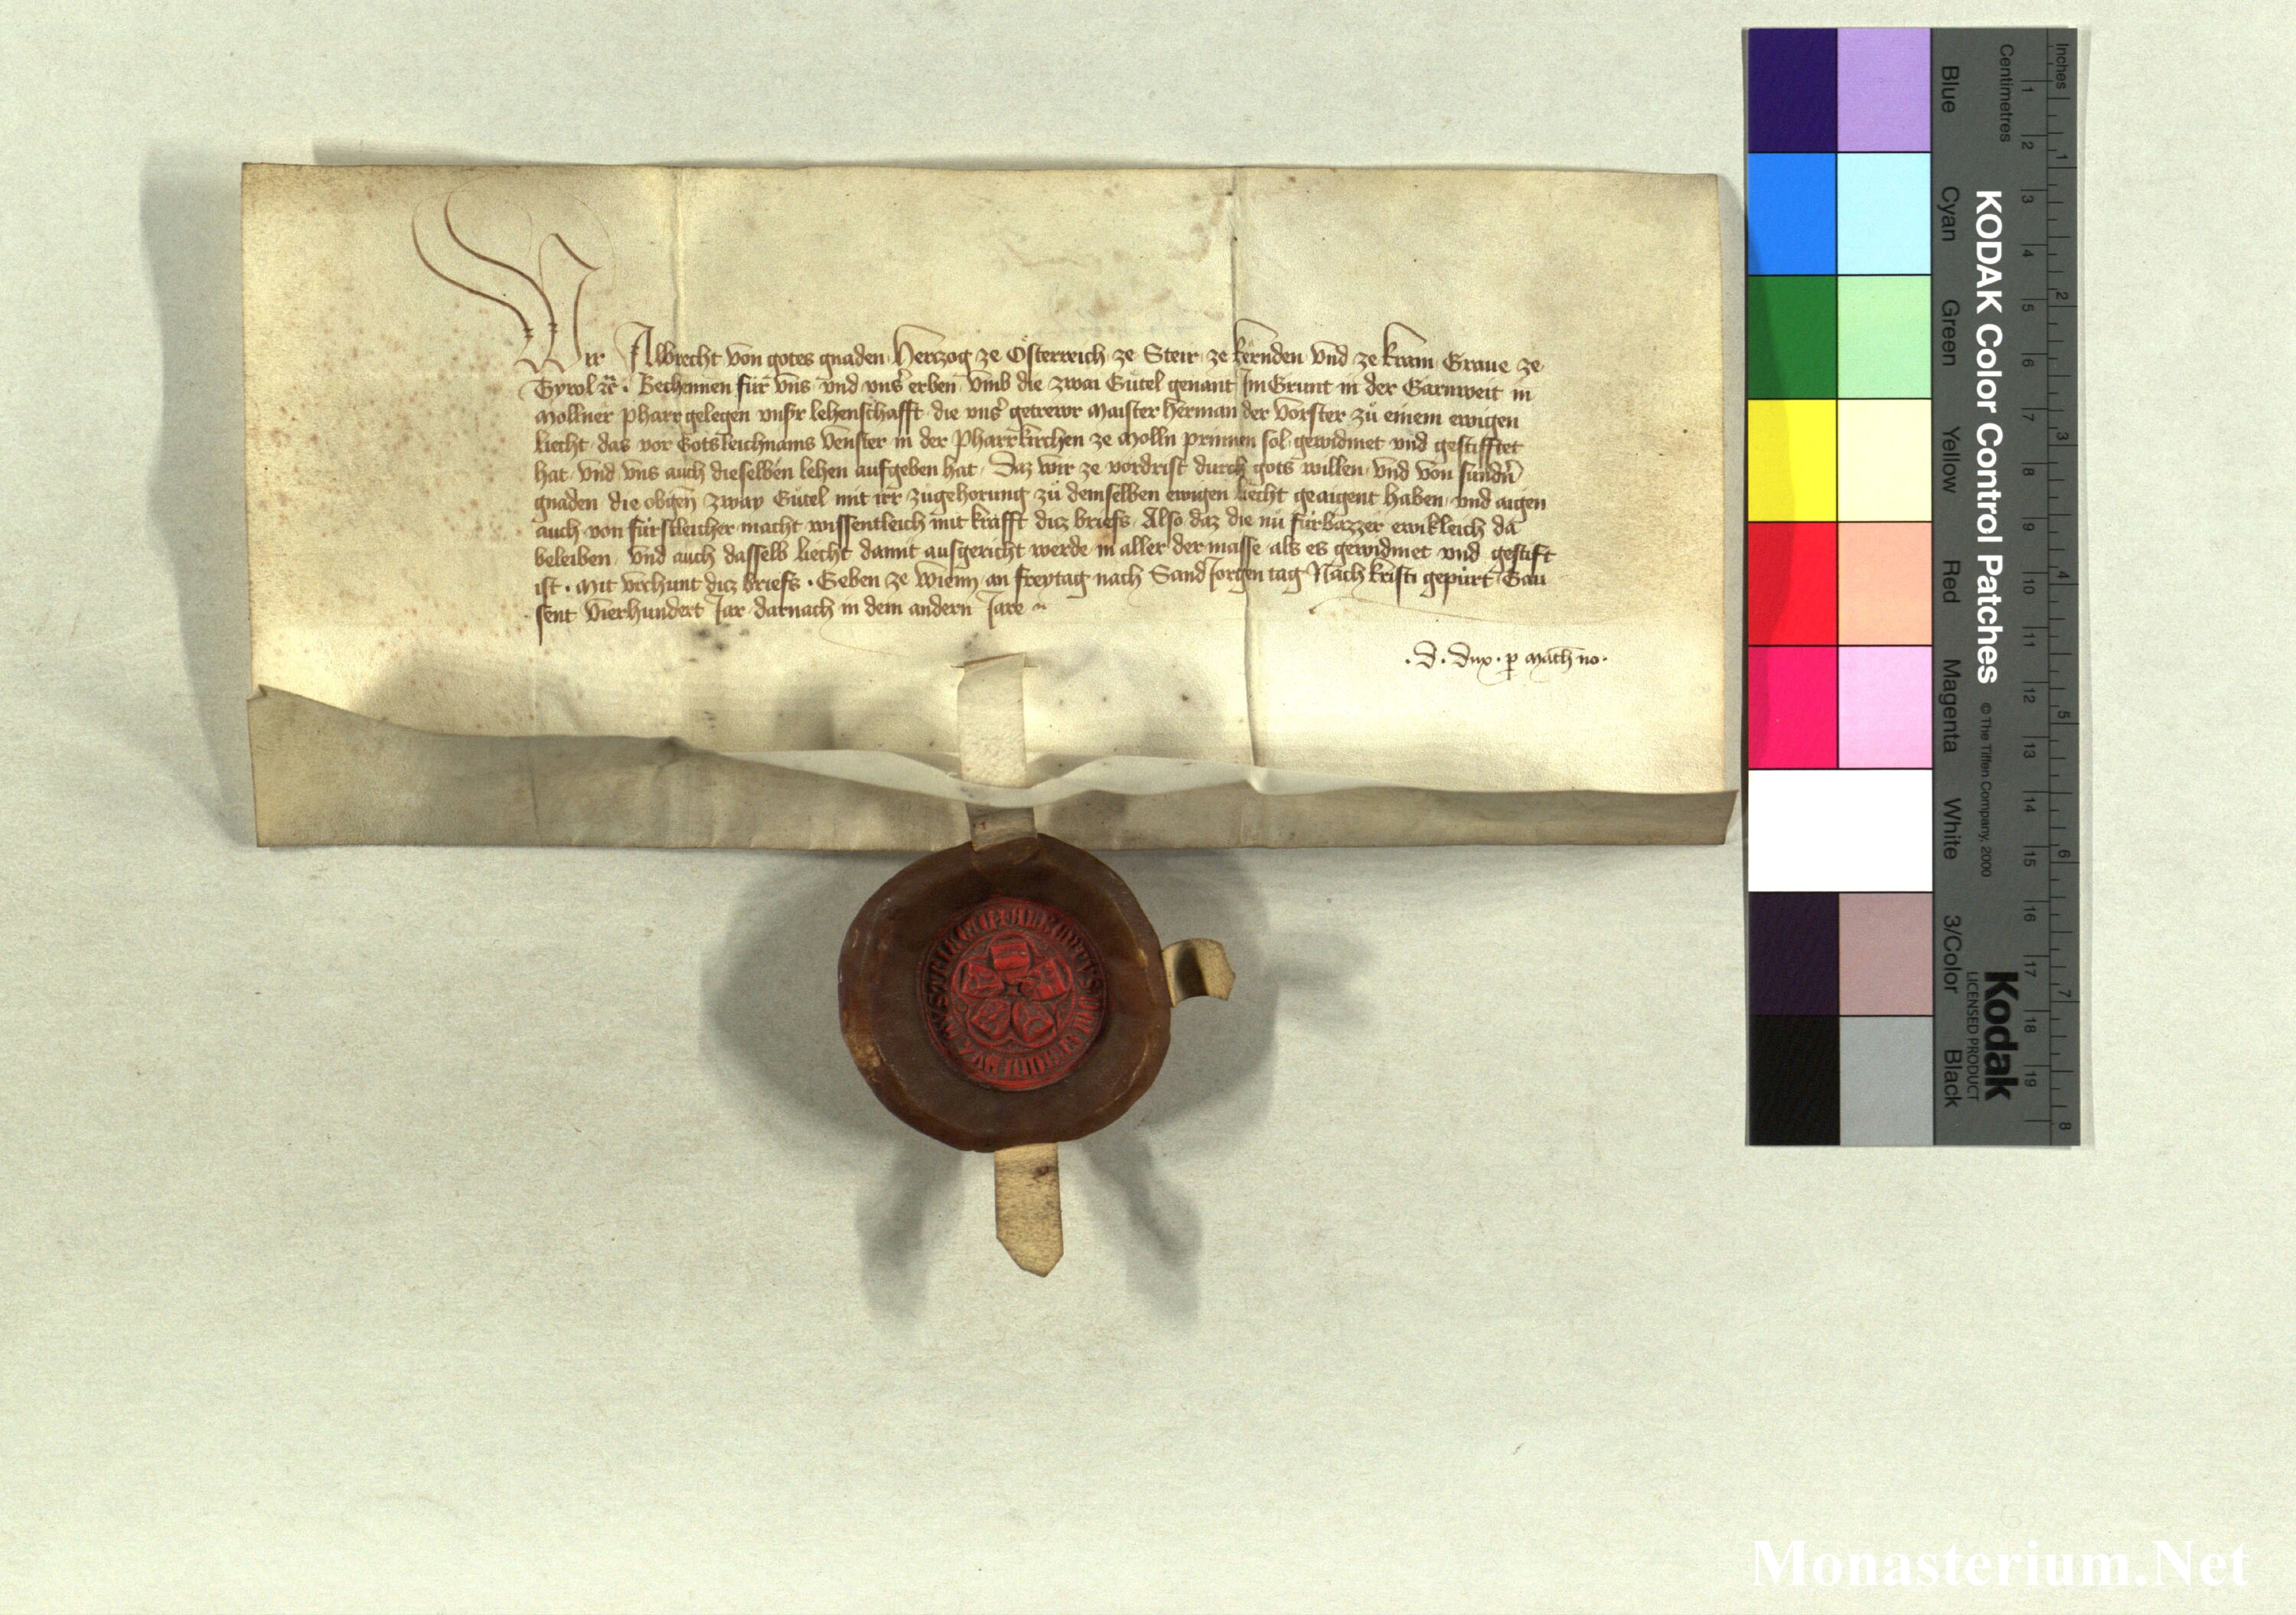 Wir Albrecht von gotes gnaden Herczog ze Österreich ze Steir ze kernden vnd ze krain Graue ze
Tyrol ꝛc̃ . Bechennen für vns vnd vnẜ erben vmb die zwai Gütel genant Im Grunt in der Garnweit in
Mollner pharr gelegen vnsr lehenschafft die vnẜ getrewr Maister Herman der vorster zů einem ewigen
liecht das vor Gotsleichnams venster in der Pharrkirchen ze Molln prinnen sol gewidmet vnd gestifftet
hat vnd vns auch dieselben lehen aufgeben hat Daz wir ze vordrist durch gots willen vnd von sundn̄
gnaden die obgen̄ zway Gůtel mit irr zůgehorung zů demselben ewigen liecht geaigent haben vnd aigen
auch von fürstleicher macht wissentleich mit krafft dicz briefs Also daz die nů fürbazzer ewikleich da
beleiben vnd auch dasselb liecht damit ausgericht werde in aller der masse als es gewidmet vnd gestift
ist . Mit vrchunt dicz briefs . Geben ze Wienn an freytag nach Sand Jorgen tag Nach kristi gepürt Tau
sent vierhundert Jar darnach in dem andern Jare
. d . dux . ꝑ Math no .
Inches
Centimetres
1 2 3 4 5 6 7 8 9 10 11 12 13 14 15 16 17 18 19
1 2 3 4 5 6 7 8
Blue Cyan Green Yellow Red Magenta White 3/Color Black
KODAK Color Control Patches
© The Tiffen Company, 2000
Kodak
LICENSED PRODUCT
Monasterium.Net